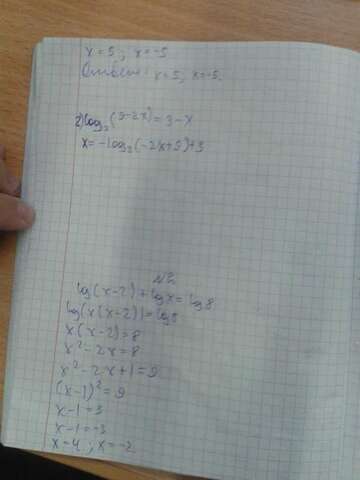 x = 5 ; x = -5
Ответ: x = 5, x = -5.
2) log₂(9-2x) = 3-x
x = -log₂(-2x+9)+3
№2
lg(x-2) + lg x = lg 8
lg(x(x-2)) = lg 8
x(x-2) = 8
x² - 2x = 8
x² - 2x + 1 = 9
(x-1)² = 9
x-1 = 3
x-1 = -3
x = 4 ; x = -2